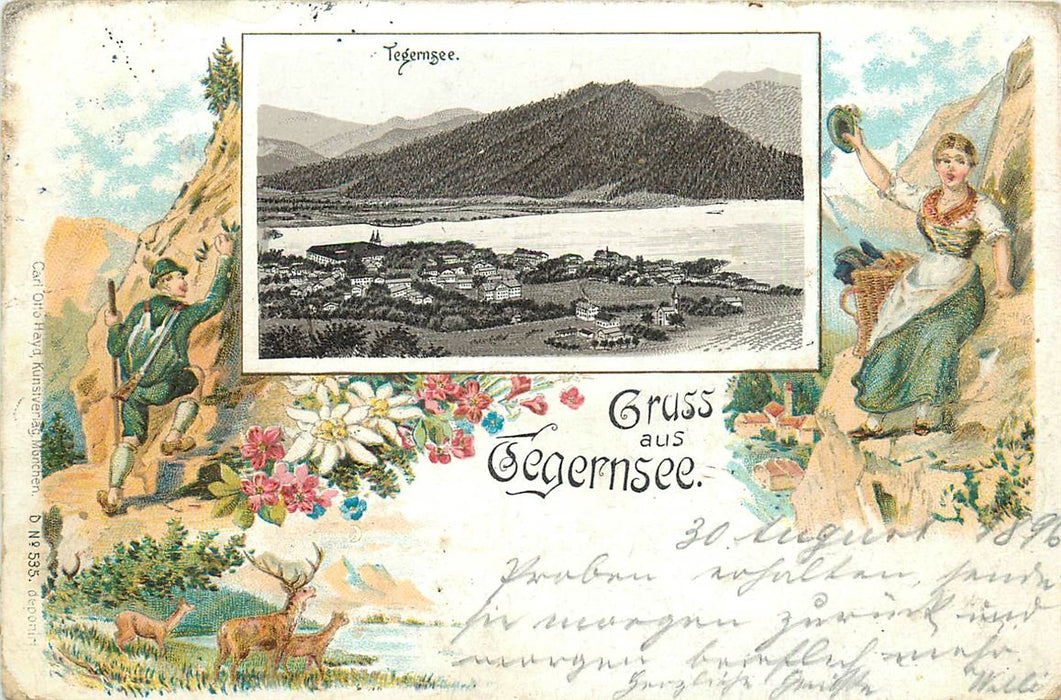 Tegernsee.
Gruss
aus
Tegernsee.
Carl Otto Hayd, Kunstverlag, München. D Nº 535. deponirt
30. August 1896
Proben erhalten, sende
sie morgen zurück und
morgen brieflich mehr
Herzliche Grüsse Willi